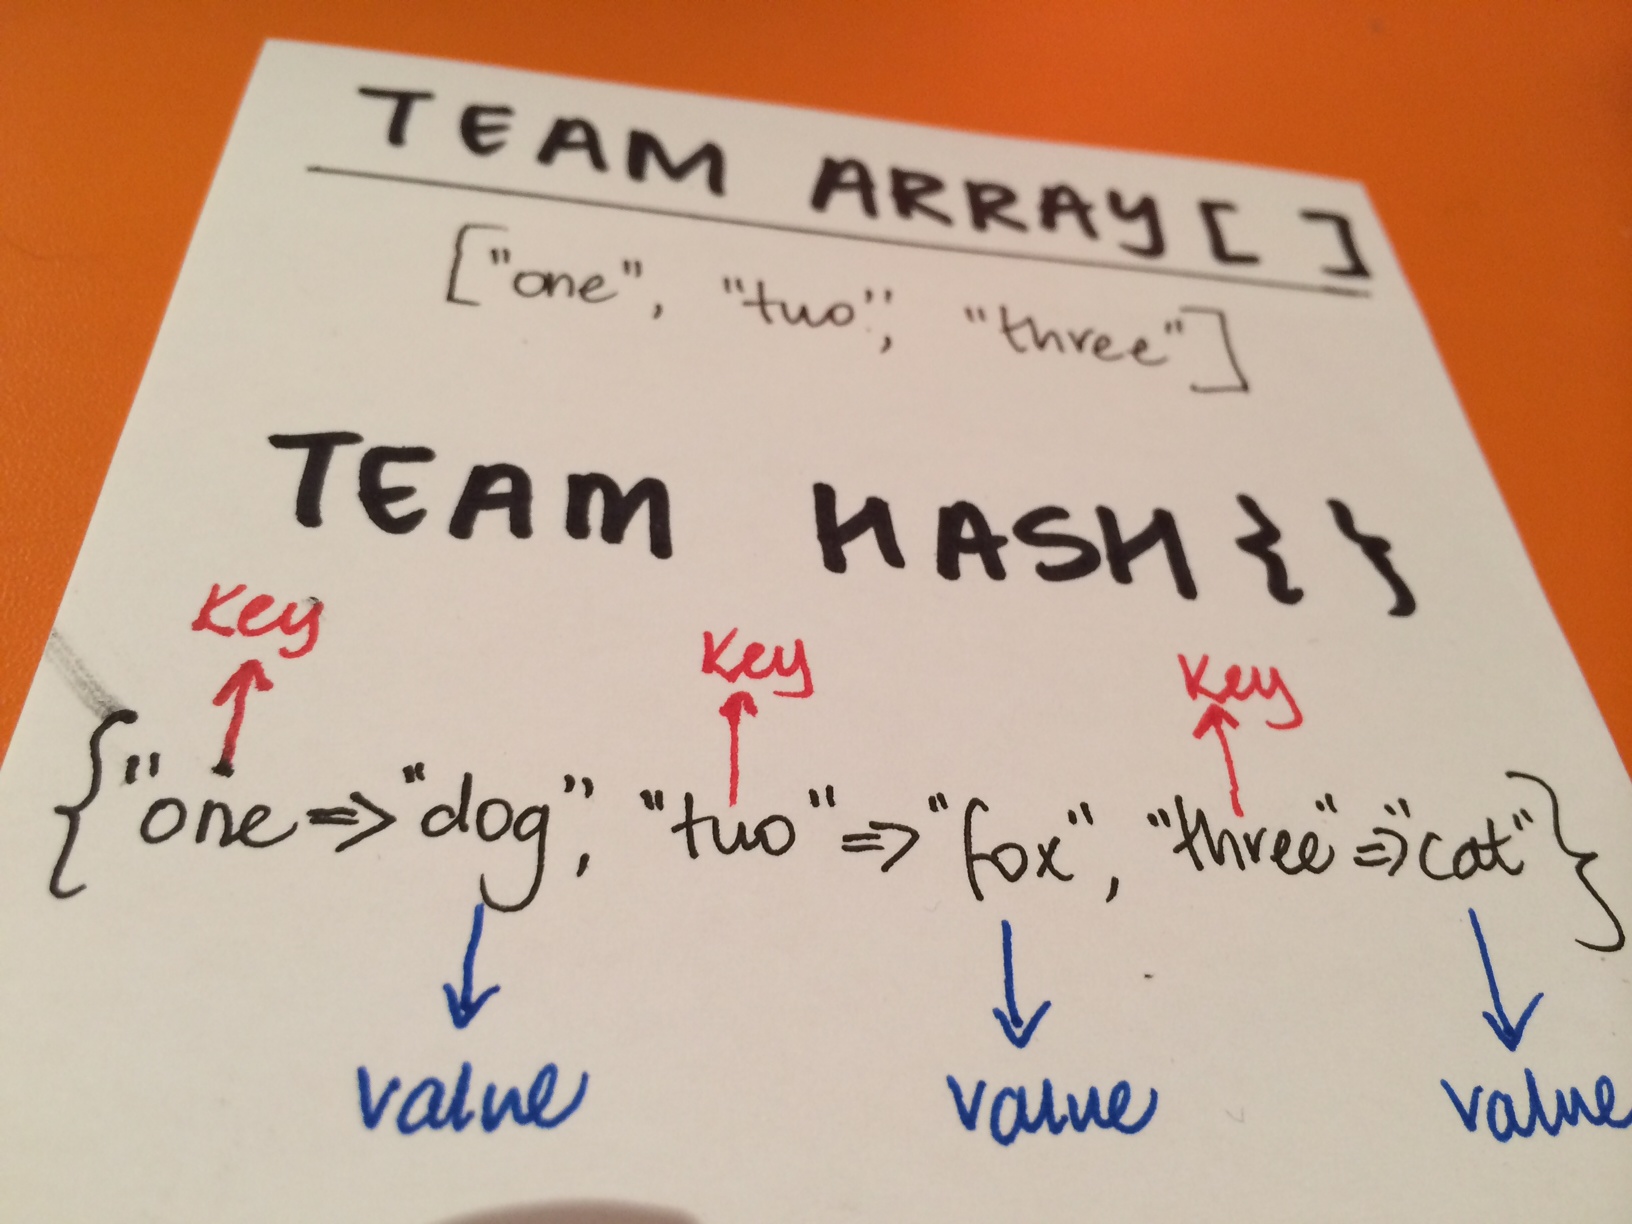 TEAM ARRAY[ ]
["one", "two", "three"]
TEAM HASH{ }
Key Key Key
{"one=>"dog", "two"=>"fox", "three"=>"cat"}
value value value